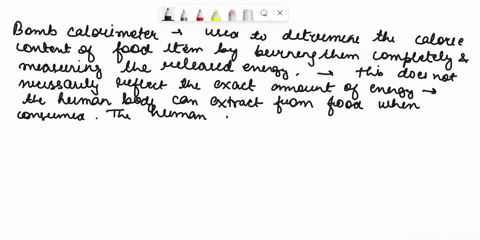 Bomb calorimeter → used to determine the calorie
content of food item by burning them completely &
measuring the released energy. → this does not
necessarily reflect the exact amount of energy →
the human body can extract from food when
consumed. The human .